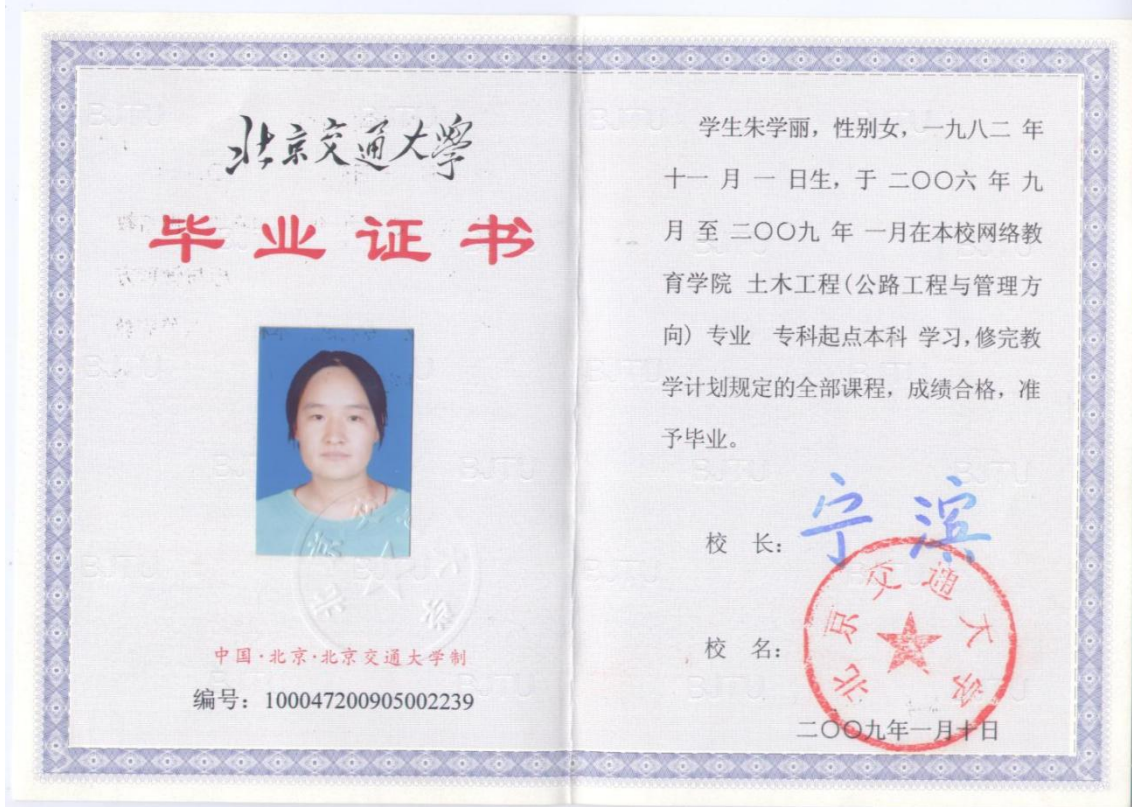 北京交通大學
毕业证书
中国·北京·北京交通大学制
编号：100047200905002239
学生朱学丽，性别女，一九八二 年
十一 月 一 日生，于 二〇〇六 年 九
月 至 二〇〇九 年 一月在本校网络教
育学院 土木工程(公路工程与管理方
向) 专业 专科起点本科 学习，修完教
学计划规定的全部课程，成绩合格，准
予毕业。
校 长：宁滨
校 名：
北京交通大学
二〇〇九年一月十日
BJTU